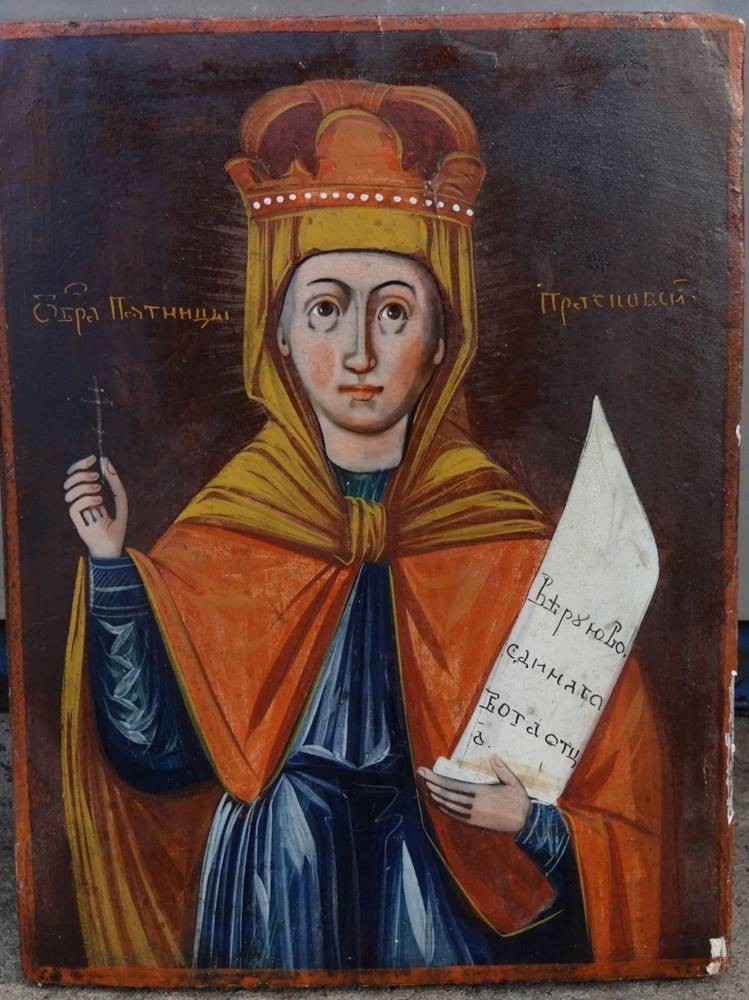 Обра Пѧтницы
Прасковѣи
Вѣрꙋюво
єдинаго
Вога отц
а.